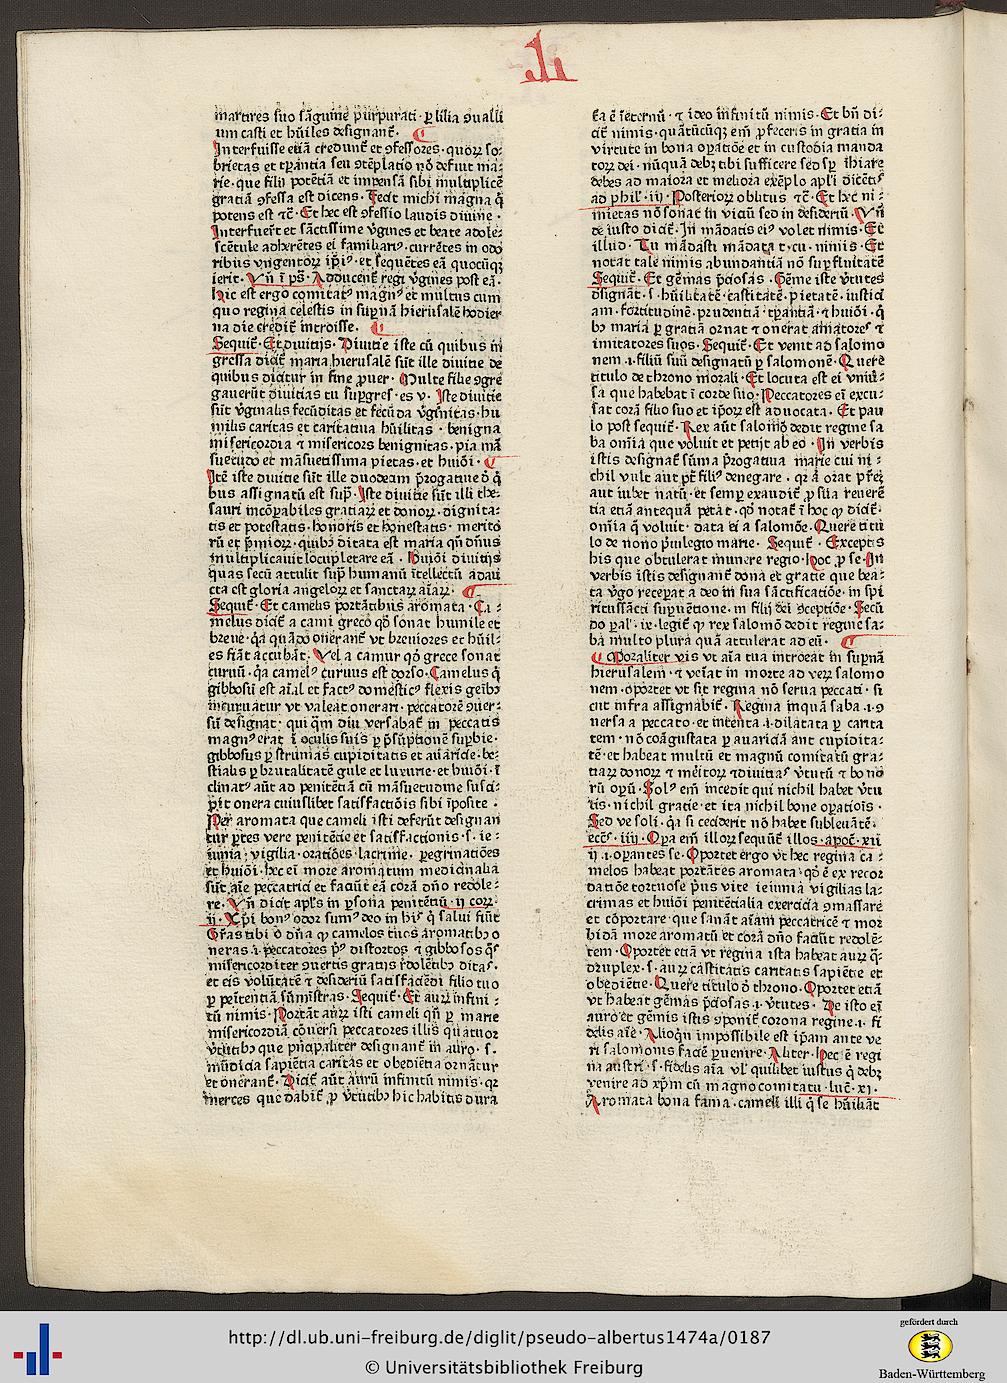 L
martires suo sāguine purpurati · ꝑ lilia ꝯualli
um casti et hūiles designant̄ .
Interfuisse etiā credunt̄ et ꝯfessores · quorꝝ so⸗
brietas et tꝑantia seu ꝯtēplatio nō defuit ma⸗
rie · que filij potētiā et impensā sibi multiplicē
gratiā ꝯfessa est dicens . Fecit michi magna q̄
potens est ⁊c̄ · Et hec est ꝯfessio laudis diuine ·
Interfuer̄t et sāctissime v̄gines et beate adole⸗
scētule adherētes ei familiariꝰ · currētes in odo
ribus vngentorꝝ ip̄iꝰ · et sequētes eā quocūqꝫ
ierit . Vn̄ ī pꝫ̄ · Adducent̄ regi v̄gines post eā ·
Hic est ergo comitatꝰ magnꝰ et multus cum
quo regina celestis in suꝑnā hierusalē hodier
na die credit̄ introisse .
Sequit̄ · Et diuitijs · Diuitie iste cū quibus in
gressa dicit̄ maria hierusalē sūt ille diuitie de
quibus dicitur in fine ꝓuer · Multe filie ꝯgre
gauerūt diuitias tu suꝑgresˀ · es v · Iste diuitie
sūt v̄ginalis fecūditas et fecūda v̄ginitas · hu
milis caritas et caritatiua hūilitas · benigna
misericordia ⁊ misericors benignitas · pia mā
suetudo et māsuetissima pietas · et huiōi ·
Itē iste diuitie sūt ille duodecim p̄rogatiue d̄ q̄
bus assignatū est sup̄ · Iste diuitie sūt illi the⸗
sauri incōꝑabiles gratiarꝝ et donorꝝ · dignita⸗
tis et potestatis · honoris et honestatis · merito
rū et p̄miorꝝ · quibꝰ ditata est maria qn̄ dn̄us
multiplicauit locupletare eā · Huiōi diuitijs
quas secū attulit sup̄ humanū ītellectū adau
cta est gloria angelorꝝ et sanctarꝝ aīarꝝ ·
Sequit̄ · Et camelis portātibus aromata · Ca⸗
melus dicit̄ a cami greco qd̄ sonat humile et
breue · q̄a quādo onerant̄ vt breuiores et hūil⸗
es fiāt accubāt · Vel a camur qd̄ grece sonat
curuū · q̄a camelꝰ curuus est dorso · Camelus q̄
gibbosū est aīal et factꝰ domesticꝰ flexis genibꝰ
incuruatur vt valeat onerari · peccatorē ꝯuer⸗
sū designat · qui qm̄ diu versabat̄ in peccatis
magnꝰ erat ī oculis suis ꝑ p̄sūptionē superbie ·
gibbosus ꝑ strumas cupiditatis et auaricie · be⸗
stialis ꝑ brutalitatē gule et luxurie · et huiōi · ī
clinatꝰ aūt ad penitētiā cū māsuetudine susci⸗
pit onera cuiuslibet satisfactiōis sibi īposite ·
Per aromata que cameli isti deferūt designan
tur ꝑtes vere penitētie et satisfactionis · s · ie⸗
iunia · vigilia · oratiōes · lacrime · peregrinatiōes
et huiōi · hec ei more aromatum medicinalia
sūt aīe peccatrici et faciūt eā corā dn̄o redole⸗
re · Vn̄ dicit apl̄s in ꝑsona penitētiū · ij corꝝ ·
ij · Xp̄i bonꝰ odor sumꝰ deo in hijˢ q̄ salui fiūt
Gr̄as tibi o dn̄a qꝫ camelos tuos aromatibꝰ o
neras · i · peccatores pˢ̄ distortos ⁊ gibbosos q̄ˢ
misericorditer ꝯuertis gratijs r̄dolētibꝰ ditas ·
et eis volūtatē ⁊ desideriū satisfaciēdi filio tuo
ꝑ penitentiā sūmistras · Sequit̄ · Et aurū infini⸗
tū nimis · Portāt aurꝝ isti cameli qn̄ ꝑ marie
misericordiā cōuersi peccatores illis quatuor
v̄tutibꝰ que p̄ncipaliter designant̄ in auro · s ·
mūdicia sapiētia caritas et obediētia ornātur
et onerant̄ · Dicit̄ aūt aurū infinitū nimis · qꝛ
merces que dabit̄ ꝓ v̄tutibꝰ hic habitis dura
ta ē ī eternū · ⁊ ideo infinitū nimis · Et bn̄ di⸗
cit̄ nimis · quātūcūqꝫ em̄ ꝓfeceris in gratia in
virtute in bona oꝑatiōe et in custodia manda
torꝝ dei · nūquā debꝫ tibi sufficere sed sꝑ īhiare
debes ad maiora et meliora exēplo apl̄i dicētis
ad phil̄ · iij · Posteriorꝝ oblitus ⁊c̄ · Et hec ni⸗
mietas nō sonat in viciū sed in desideriū · Vn̄
de iusto dicit̄ · In mādatis eiꝰ volet nimis · Et
illud · Tu mādasti mādata t · cu · nimis · Et
notat tale nimis abundantiā nō suꝑfluitatē
Sequit̄ · Et gēmas p̄ciosas · Gēme iste v̄tutes
dsignāt · s · hūilitatē · castitatē · pietatē · iustici
am · fortitudinē · prudentiā · tꝑantiā · ⁊ huiōi · q̄
bꝰ maria ꝑ gratiā ornat ⁊ onerat amatores ⁊
imitatores suos · Sequit̄ · Et venit ad salomo
nem · i · filiū suū designatū ꝑ salomonē · Quere
titulo de throno morali · Et locuta est ei vniū⸗
sa que habebat ī corde suo · Peccatores ei excu⸗
sat corā filio suo et ip̄orꝝ est aduocata · Et pau
lo post sequit̄ · Rex aūt salomō dedit regine sa
ba om̄ia que voluit et petijt ab eo · In verbis
istis designat̄ sūma p̄rogatiua marie cui ni⸗
chil vult aut pt̄ filiꝰ denegare · qꝛ ā orat pr̄eꝫ
aut iubet natū · et semꝑ exaudit̄ ꝓ sua reuerē
tia etiā antequā petāt · qd̄ notat̄ ī hoc qꝫ dicit̄ ·
om̄ia q̄ voluit · data ei a salomōe · Quere titu
lo de nono p̄uilegio marie · Sequit̄ · Exceptis
his que obtulerat munere regio · Hoc ꝓ se · In
verbis istis designant̄ dona et gratie que bea⸗
ta v̄go receperat a deo in sua sāctificatiōe · in spi
ritussācti suꝑuentione · in filij dei ꝯceptiōe · Secū
do ꝑal̄ · ix · legit̄ qꝫ rex salomō dedit regine sa⸗
ba multo plura quā attulerat ad eū ·
Moraliter vis vt aīa tua introeat in suꝑnā
hierusalem · ⁊ veīat in morte ad veꝝ salomo
nem · oportet vt sit regina nō serua peccati · si
cut infra assignabit̄ · Regina inquā saba · i · ꝯ
uersa a peccato · et intenta · i · dilatata ꝑ carita
tem · nō coāgustata ꝑ auariciā aut cupidita⸗
tē · et habeat multū et magnū comitatū gra⸗
tiarꝝ donorꝝ ⁊ meritorꝝ ⁊ diuitias v̄tutū ⁊ bono
rū oꝑū · Solꝰ em̄ incedit qui nichil habet v̄tu
tis · nichil gratie · et ita nichil bone oꝑatiois ·
Sed ve soli · q̄a si ceciderit nō habet subleuātē ·
eccēˢ · iiij · Oꝑa em̄ illorꝝ sequūt̄ illos · apoc̄ · xii
ij · i · oꝑantes se · Oportet ergo vt hec regina ca⸗
melos habeat portātes aromata · qd̄ ē ex recor
datiōe tortuose p̄us vite ieiunia vigilias la⸗
crimas et huiōi penitētialia exercicia ꝯmassare
et cōportare · que sanāt aīam peccatricē ⁊ mor
bidā more aromatū et corā dn̄o faciūt redolē⸗
tem · Oportet etiā vt regina ista habeat aurꝝ q̄⸗
druplex · s · aurꝝ castitatis caritatis sapiētie et
obediētie · Quere titulo d̄ throno · Oportet etiā
vt habeat gēmas p̄ciosas · i · v̄tutes · De isto ei
auro et gēmis istis ꝯponit̄ corona regine · i · fi
delis aīe · Alioqn̄ impossibile est ip̄am ante ve
ri salomonis faciē ꝑuenire · Aliter · Hec ē regi
na austri · s · fidelis aīa vl̄ quilibet iustus q̄ debꝫ
venire ad xp̄m cū magno comitatu · luc̄ · xj ·
Aromata bona fama · cameli illi q̄ se hūiliāt
http://dl.ub.uni-freiburg.de/diglit/pseudo-albertus1474a/0187
© Universitätsbibliothek Freiburg
gefördert durch
Baden-Württemberg